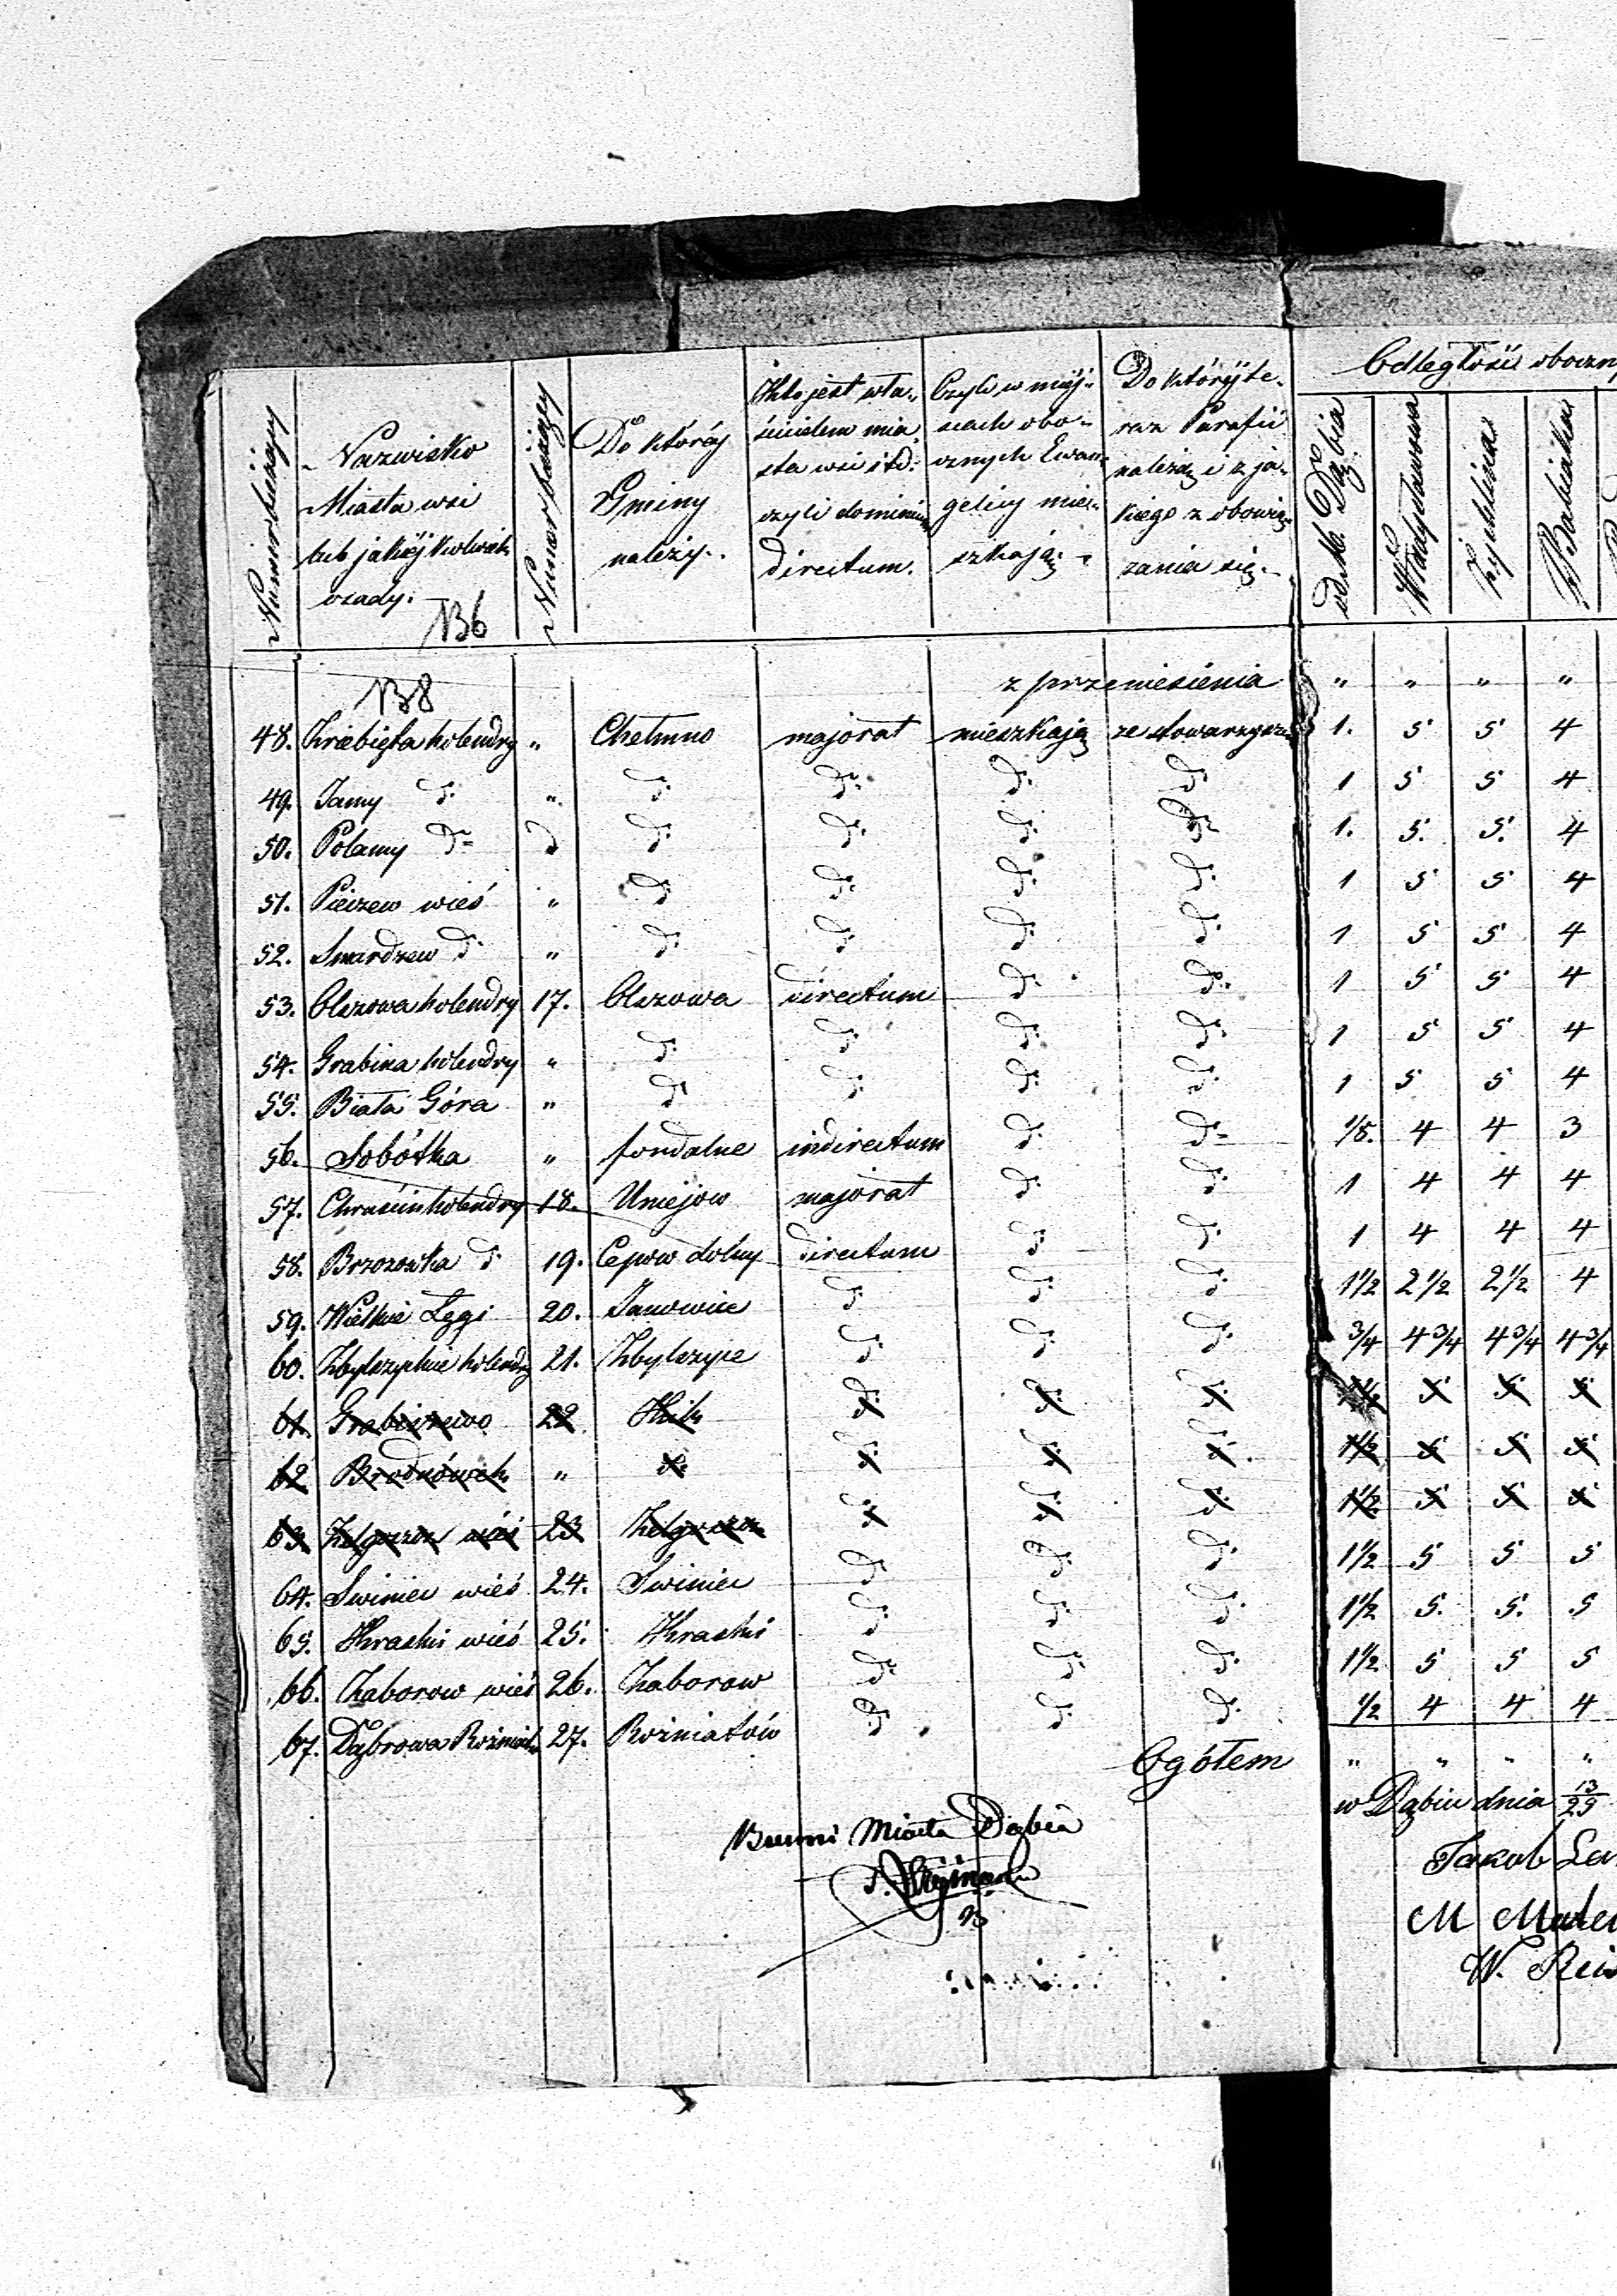 Numer bieżący
Nazwisko
Miasta wsi
lub jakiéj kolwiek
osady.
Numer bieżący
Do któréj
Gminy
należy.
Kto jest wła-
ścicielem mia
sta wsi itd.
czyli dominium
directum.
Czyli w miéj-
scach obo-
cznych Ewan-
gelicy mie-
szkają.
Do któréj te-
raz Parafii
należą i z ja-
kiego z obowią-
zania się.
Odległość oboczn
od M. Dąbia
Władysławowa
Zychlina
Babiaka
B6
B8
z przeniesienia " " " "
48. Krzebięta holendry " Chełmno majorat mieszkają ze stowarzysze 1. 5 5 4
49. Jamy d: " d: d: d: d: 1 5 5 4
50. Polamy d: d d: d: d: d: 1. 5. 5. 4
51. Pieczew wieś " d: d: d: d: 1 5 5 4
52. Smardzew d: " d: d: d: d: 1 5 5 4
53. Olszowa holendry 17. Olszowa directum d: d: 1 5 5 4
54. Grabina holendry " d: d: d: d: 1 5 5 4
55. Biała Góra " d: d: d: d: 1 5 5 4
56. Sobótka " fondalne indirectum d: d: 1/8. 4 4 3
57. Chruścin holendry 18. Uniejow majorat d: d: 1 4 4 4
58. Brzozowka d: 19. Cepow dolny directum d: d: 1 4 4 4
59. Wielkie Łęgi 20. Janowice d: d: d: 1 1/2 2 1/2 2 1/2 4
60. Zbylczyckie holendry 21. Zbylczyce d: d: d: 3/4 4 3/4 4 3/4 4 3/4
61. Grabiszewo 22 d: d: d: 1 1/2 5 5 5
62 Brodnówek " d: d: d: d: 1 1/2 5 5 5
63. wieś 23 d: d: d: 1 1/2 5 5 5
64. Swinice wieś 24. Swinice d: d: d: 1 1/2 5 5 5
65. Kraski wieś 25. Kraski d: d: d: 1 1/2 5. 5. 5
66. Zaborow wieś 26. Zaborow d: d: d: 1 1/2 5 5 5
67. Dąbrowa Rożniat. 27. Rożniatów d: d: d: 1/2 4 4 4
Ogółem " " " "
w Dąbiu dnia 13/25
Burmi Miasta Dąbia
Jakob
M
W.